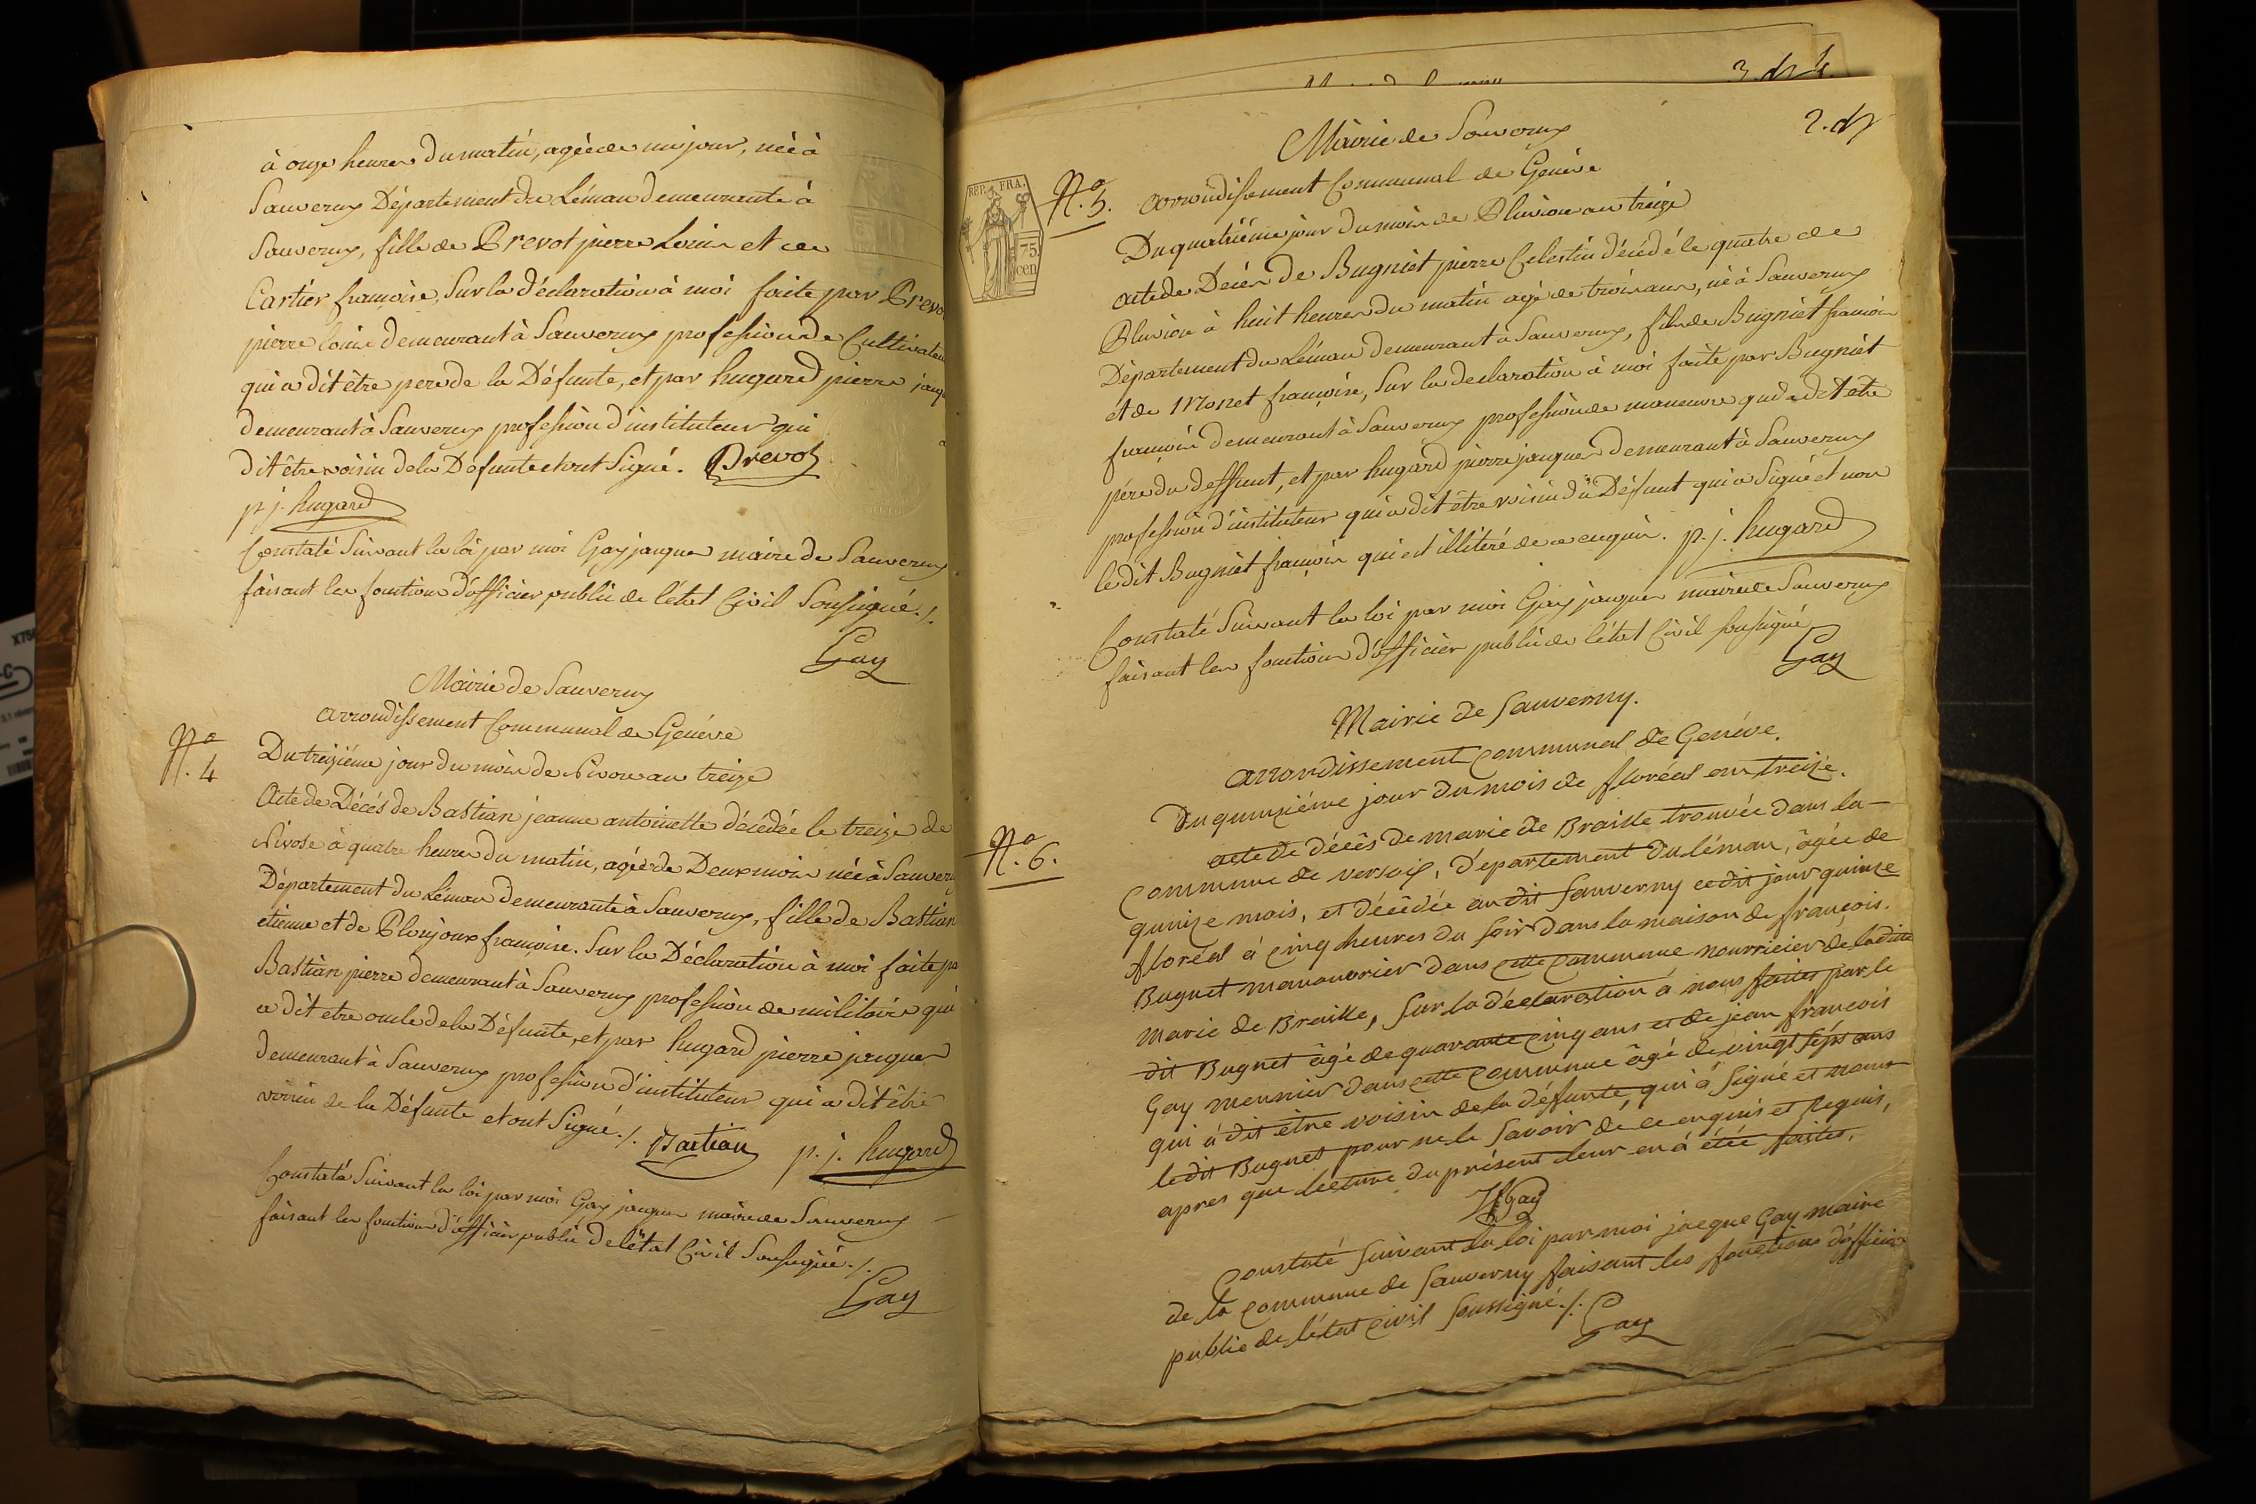 à onze heures du matin, agée de un jour, née à
Sauverny Département du Léman demeurante à
Sauverny, fille de Prevot pierre Louis et de
Cartier françoise, Sur la déclaration à moi faite par Prevo
pierre louis demeurant à Sauverny profession de Cultivateu
qui a dit être pere de la Défunte, et par hugard pierre jaqu
demeurant à Sauverny profession d'instituteur qui
dit être voisin de la Défunte et ont Signé. Prevot
p. j. hugard
Constaté Suivant la loi par moi Gay jaques maire de Sauverny
faisant les fonctions d'officier public de l'état Civil Sousigné ./.
Gay
Mairie de Sauverny
arrondissement Communal de Genéve
N.º 4
Du treiziéme jour du mois de Nivose an treize
Acte de Décés de Bastian jeanne antoinette décédée le treize de
Nivose à quatre heures du matin, agée de Deux mois née à Sauvern
Département du Léman demeurante à Sauverny, fille de Bastian
etienne et de Plonjoux françoise. Sur la Déclaration à moi faite pa
Bastian pierre demeurant à Sauverny profession de militaire qui
a dit etre oncle de la Défunte, et par hugard pierre jacques
demeurant à Sauverny profession d'instituteur qui a dit être
voisin de la Défunte et ont Signé ./. Bastian p. j. hugard
Constaté Suivant la loi par moi Gay jaques maire de Sauverny
faisant les fonctions d'officier public de l'état Civil Sousigné ./.
Gay
2.
Mairie de Sauverny
REP. FRA.
75 cen
N.º 5.
arrondissement Communal de Genève
Du quatriéme jour du mois de Pluviose an treize
acte de Décès de Bugniet pierre Celestin décédé le quatre de
Pluviose à huit heures du matin agé de trois ans, né à Sauverny
Département du Léman demeurant à Sauverny, fils de Bugniet françois
et de Monet françoise, Sur la declaration à moi faite par Bugniet
françois demeurant à Sauverny profession de maneuvre qui a dit etre
pére du deffunt, et par hugard pierre jaques demeurant à Sauverny
profession d'instituteur qui a dit être voisin du Défunt qui a Signé et non
le dit Bugniet françois qui est illiteré de ce enquis. p. j. hugard
Constaté Suivant la loi par moi Gay jaques maire de Sauverny
faisant les fonctions d'officier public de l'état Civil sousigné
Gay
Mairie de Sauverny.
arrondissement communal de Genéve.
N.º 6.
Du quinziéme jour du mois de floréal an treize.
acte de décès de marie de Braille trouvée dans la
commune de versoix, Département du léman, âgée de
quinze mois, et décédée au dit Sauverny ce dit jour quinze
floréal à cinq heures du soir dans la maison de françois
Bugnet manouvrier dans cette commune nourricier de la dite
marie de Braille, sur la déclaration à nous faites par le
dit Bugnet âgé de quarante cinq ans et de jean françois
Gay meunier dans cette commune âgé de vingt sept ans
qui à dit être voisin de la défunte, qui à signé et non
le dit Bugnet pour ne le savoir de ce enquis et requis,
apres que lecture du présent leur en à étée faites.
Gay
Constaté suivant la loi par moi jacque Gay maire
de la commune de Sauverny faisant les fonctions d'officier
public de l'état civil soussigné ./. Gay